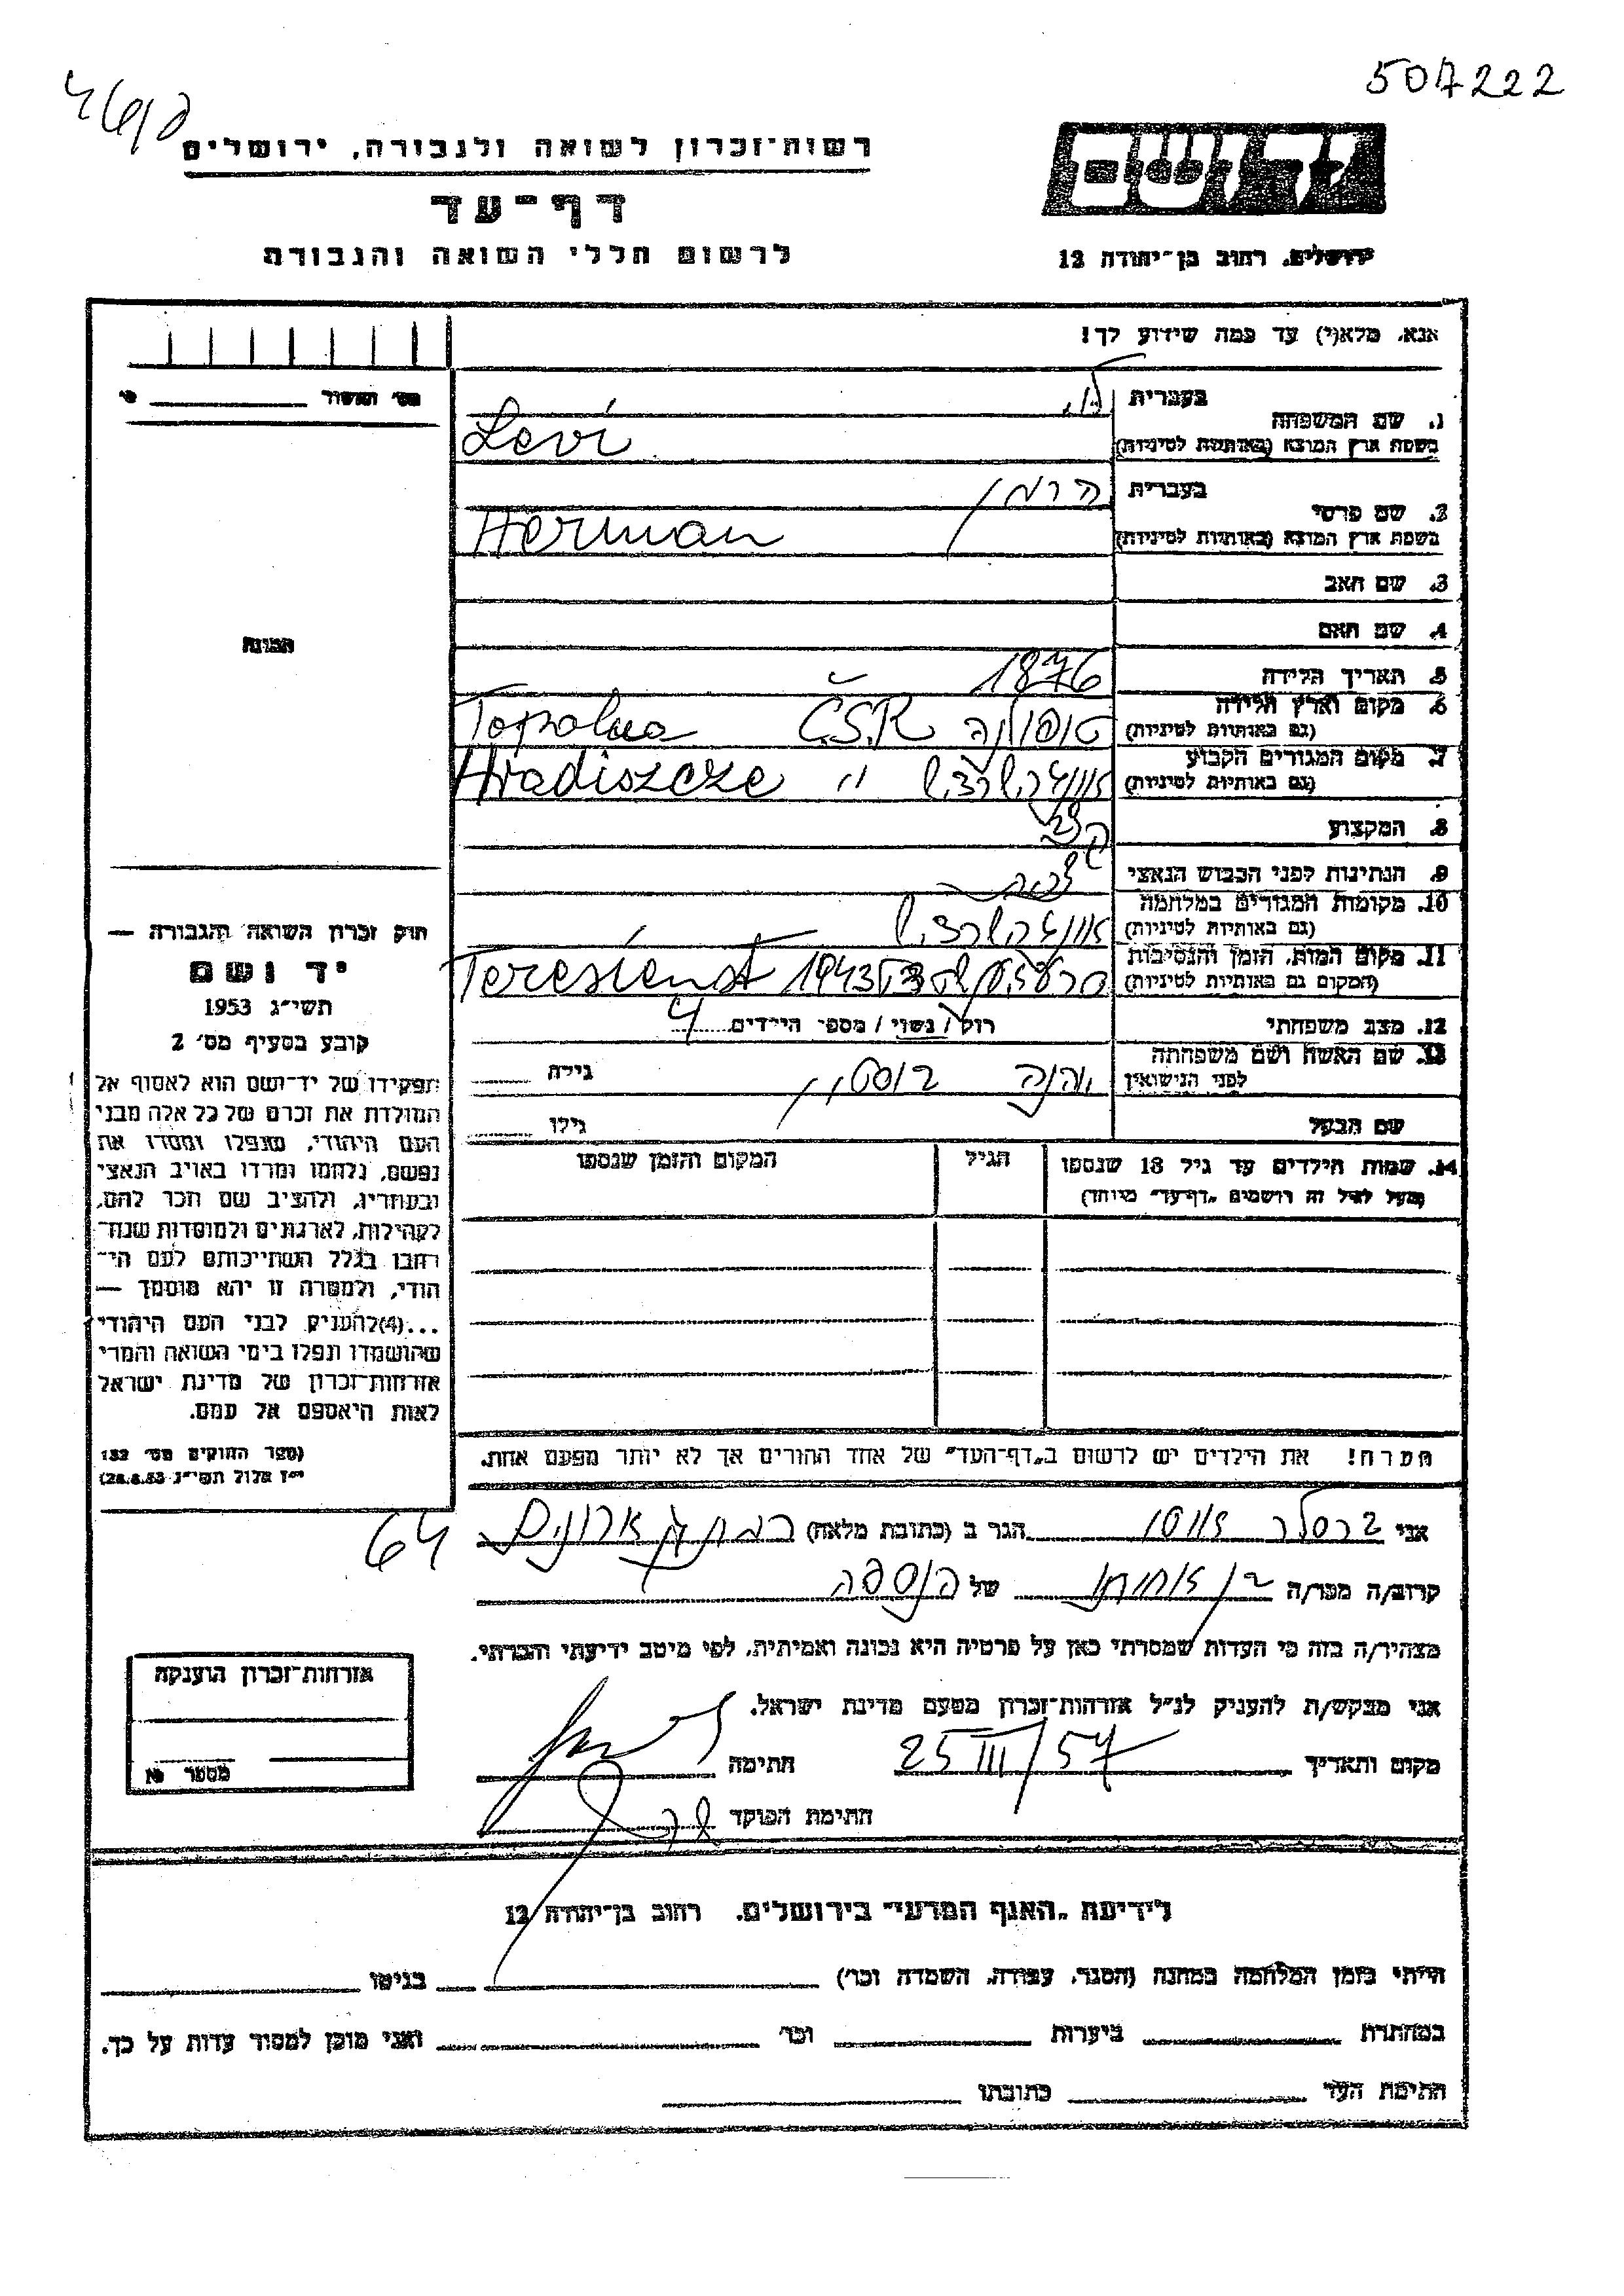 507222
רשות־זכרון לשואה ולגבורה, ירושלים
דף־עד
לרשום חללי השואה והגבורה
ירושלים, רחוב בן־יהודה 12
אנא, מלא(י) עד כמה שידוע לך!
1. שם המשפחה
בעברית לוי
בשפת ארץ המוצא (באותיות לטיניות) Levi
2. שם פרטי
בעברית הרמן
בשפת ארץ המוצא (באותיות לטיניות) Herman
3. שם האב
4. שם האם
5. תאריך הלידה 1876
6. מקום וארץ הלידה
(גם באותיות לטיניות) טופולנה Č.S.R Topolna
7. מקום המגורים הקבוע
(גם באותיות לטיניות) " Hradiszcze
8. המקצוע
9. הנתינות לפני הכבוש הנאצי
10. מקומות המגורים במלחמה
(גם באותיות לטיניות)
11. מקום המות, הזמן והנסיבות
(המקום גם באותיות לטיניות) 1943 Teresienst
12. מצב משפחתי רוק / נשוי / מספר הילדים 4
13. שם האשה ושם משפחתה
לפני הנישואין גילה
שם הבעל גילו
14. שמות הילדים עד גיל 18 שנספו
(מעל לגיל זה רושמים "דף־עד" מיוחד)
הגיל
המקום והזמן שנספו
הערה! את הילדים יש לרשום ב"דף־העד" של אחד ההורים אך לא יותר מפעם אחת.
מס' ת"ז
התמונה
חוק זכרון השואה והגבורה —
יד ושם
תשי"ג 1953
קובע בסעיף מס' 2
תפקידו של יד־ושם הוא לאסוף אל
המולדת את זכרם של כל אלה מבני
העם היהודי, שנפלו ומסרו את
נפשם, נלחמו ומרדו באויב הנאצי
ובעוזריו, ולהציב שם וזכר להם,
לקהילות, לארגונים ולמוסדות שנח־
רבו בגלל השתייכותם לעם הי־
הודי, ולמטרה זו יהא מוסמך —
...(4)להעניק לבני העם היהודי
שהושמדו ונפלו בימי השואה והמרי
אזרחות־זכרון של מדינת ישראל
לאות היאספם אל עמם.
(ספר החוקים מס' 132
י"ז אלול תשי"ג 28.8.53)
אני ברסלר יוסף הגר ב (כתובת מלאה) 64
קרוב/ה מכר/ה של הנספה
מצהיר/ה בזה כי העדות שמסרתי כאן על פרטיה היא נכונה ואמיתית, לפי מיטב ידיעתי והכרתי.
אני מבקש/ת להעניק לנ"ל אזרחות־זכרון מטעם מדינת ישראל.
מקום ותאריך 25 III/57 חתימה
חתימת הפוקד
אזרחות־זכרון הוענקה
מספר
לידיעת "האגף המדעי" בירושלים, רחוב בן־יהודה 12
הייתי בזמן המלחמה במחנה (הסגר, עבודה, השמדה וכו') בגיטו
במחתרת ביערות וכו' ואני מוכן למסור עדות על כך.
חתימת העד כתובתו